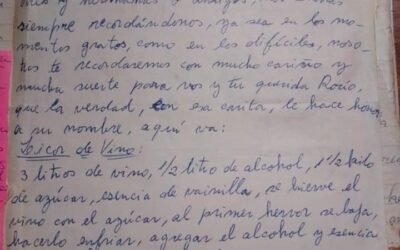 y hermanas y amigos,
siempre recordándonos, ya sea en los mo-
mentos gratos, como en los difíciles, noso-
tros te recordaremos con mucho cariño y
mucha suerte para vos y tu querida Rocío,
que la verdad, con esa carita, le hace honor
a su nombre, aquí va:
Licor de Vino:
3 litros de vino, 1/2 litro de alcohol, 1 1/2 kilo
de azúcar, esencia de vainilla, se hierve el
vino con el azúcar, al primer hervor se baja,
hacerlo enfriar, agregar el alcohol y esencia